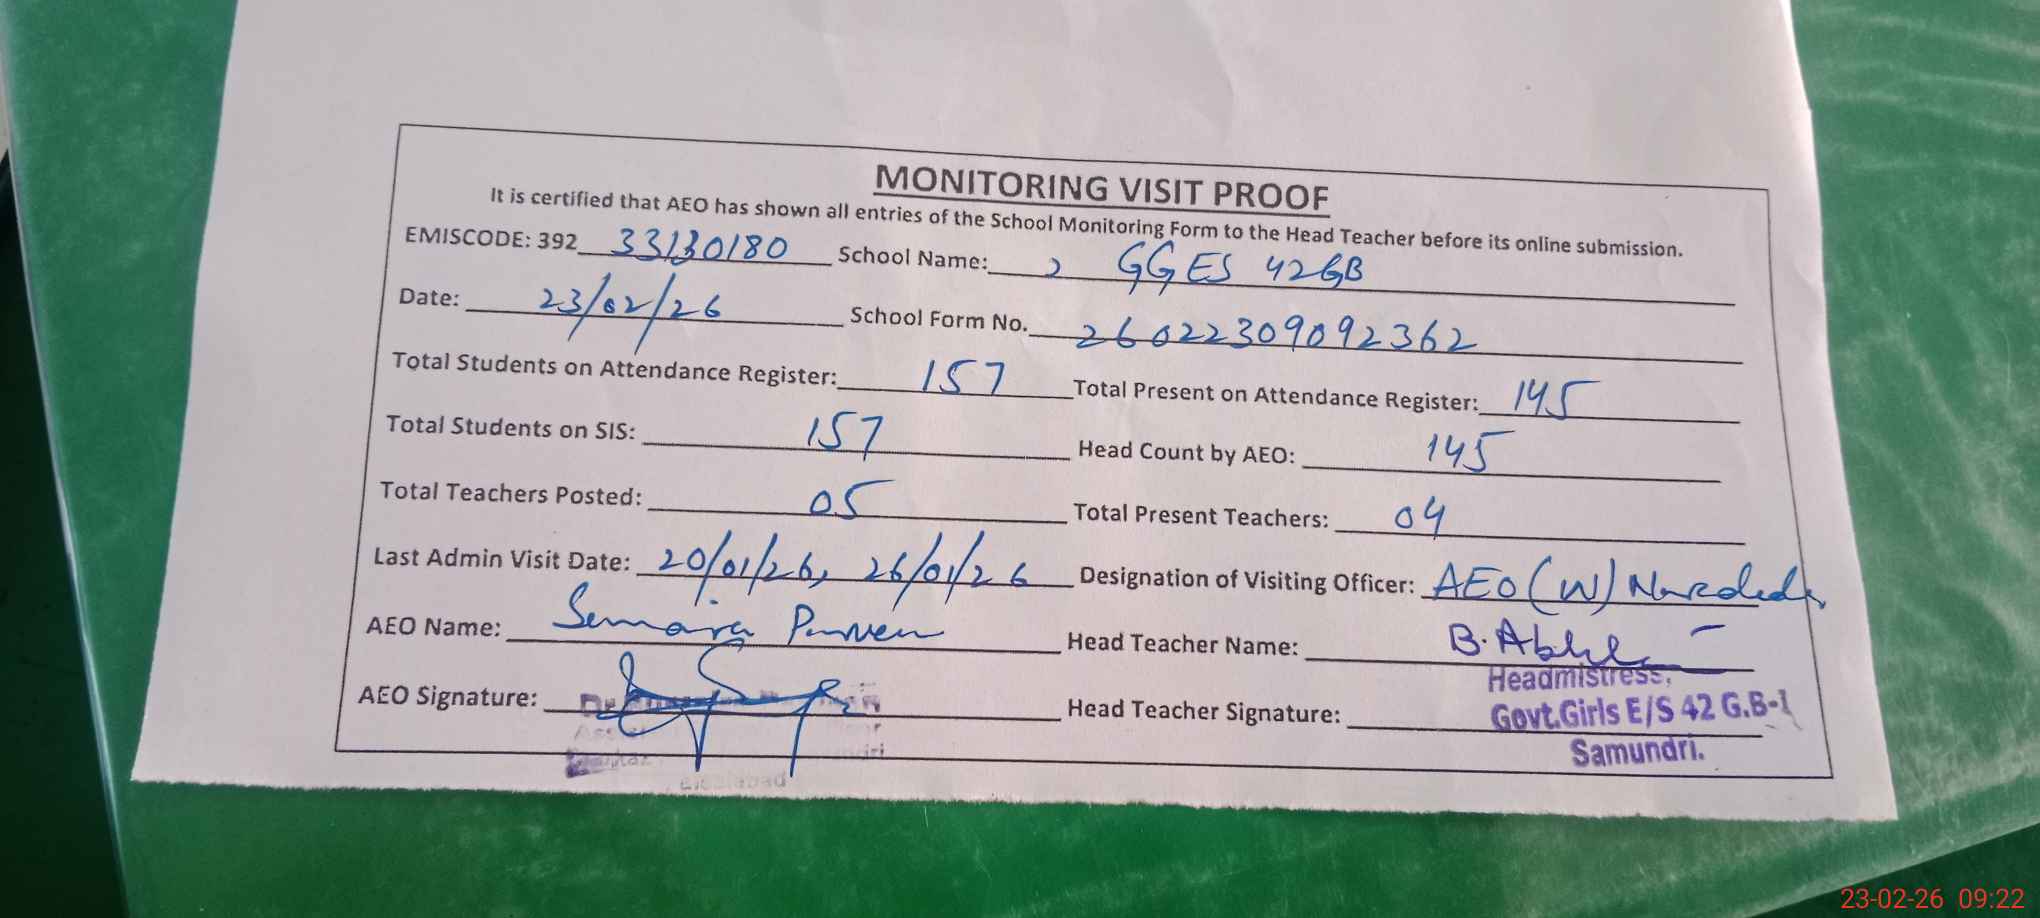 MONITORING VISIT PROOF
It is certified that AEO has shown all entries of the School Monitoring Form to the Head Teacher before its online submission.
EMISCODE: 392 33130180 School Name: GGES 42GB
Date: 23/02/26 School Form No. 26022309092362
Total Students on Attendance Register: 157 Total Present on Attendance Register: 145
Total Students on SIS: 157 Head Count by AEO: 145
Total Teachers Posted: 05 Total Present Teachers: 04
Last Admin Visit Date: 20/01/26, 26/01/26 Designation of Visiting Officer: AEO (W)
AEO Name: Sumaira Parveen Head Teacher Name:
AEO Signature: Head Teacher Signature:
Headmistress,
Govt.Girls E/S 42 G.B-1
Samundri.
23-02-26 09:22